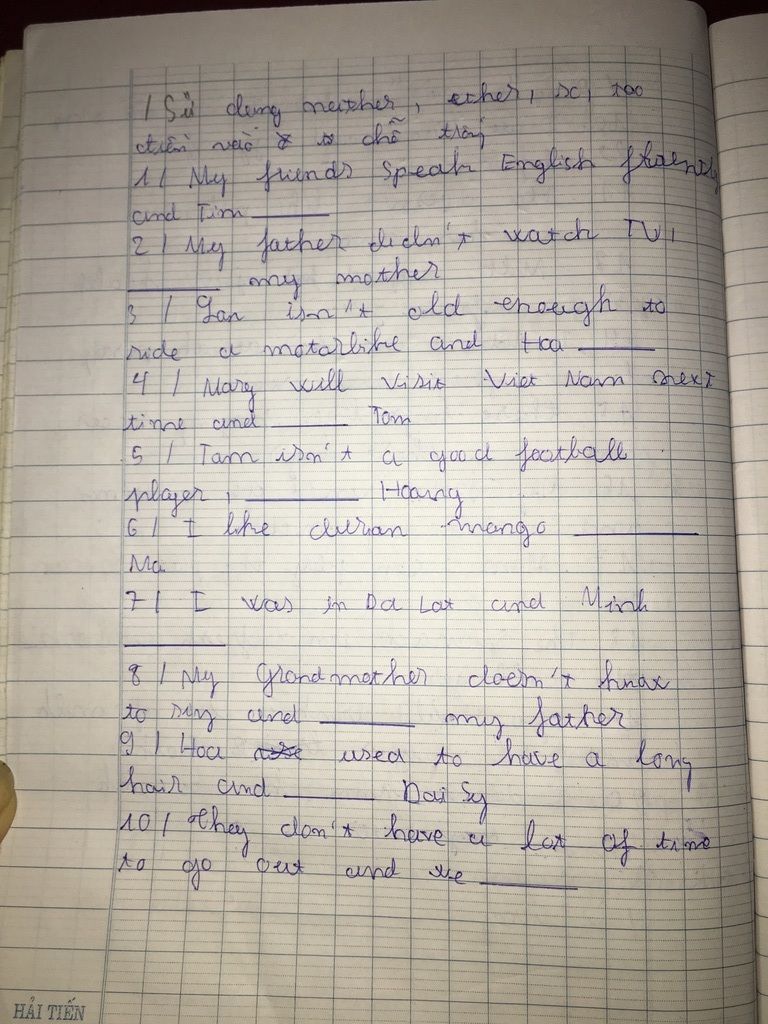 1 / Sử dụng neither, ether, so, too
điền vào chỗ trống
1 / My friends speak English fluently
and Tim ______
2 / My father didn't watch TV,
______ my mother
3 / Lan isn't old enough to
ride a motorbike and Hoa ______
4 / Mary will visit Viet Nam next
time and ______ Tom
5 / Tam isn't a good football
player, ______ Hoang
6 / I like durian mango ______
Ma
7 / I was in Da Lat and Minh
______
8 / My Grandmother doesn't know
to sing and ______ my father
9 / Hoa used to have a long
hair and ______ Dai Sy
10 / They don't have a lot of time
to go out and we ______
HẢI TIẾN